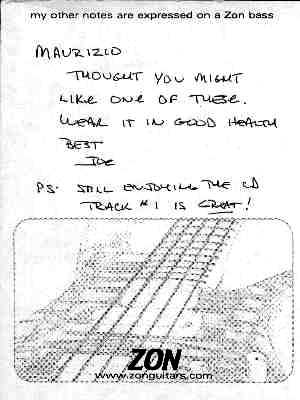 my other notes are expressed on a Zon bass
MAURIZIO
THOUGHT YOU MIGHT
LIKE ONE OF THESE.
WEAR IT IN GOOD HEALTH
BEST
JOE
PS. STILL ENJOYING THE CD
TRACK #1 IS GREAT!
ZON
www.zonguitars.com